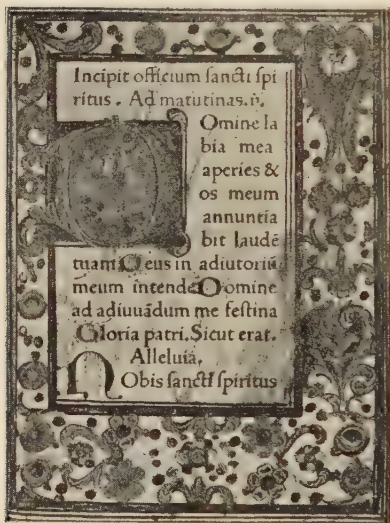 Incipit officium sancti spi
ritus. Ad matutinas. ỹ.
Domine la
bia mea
aperies &
os meum
annuntia
bit laudē
tuam. Deus in adiutoriū
meum intende Domine
ad adiuuādum me festina
Gloria patri. Sicut erat.
Alleluia.
Nobis sancti spiritus